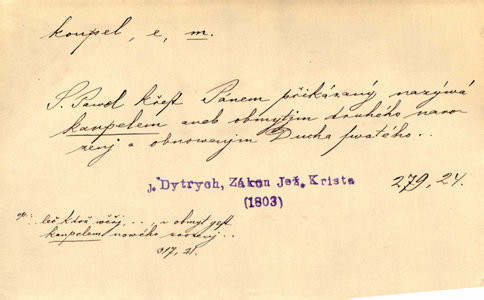 koupel, e, m.
S. Pawel křest Pánem přikázaný nazývá
kaupelem aneb obmytjm druhého naro
zenj a obnowenjm Ducha swatého..
J. Dytrych, Zákon Jež. Krista
(1803)
279, 24.
leč ktož wěřj, ..., a obmyt gest
kaupelem nowého zrozenj..
317, 21.